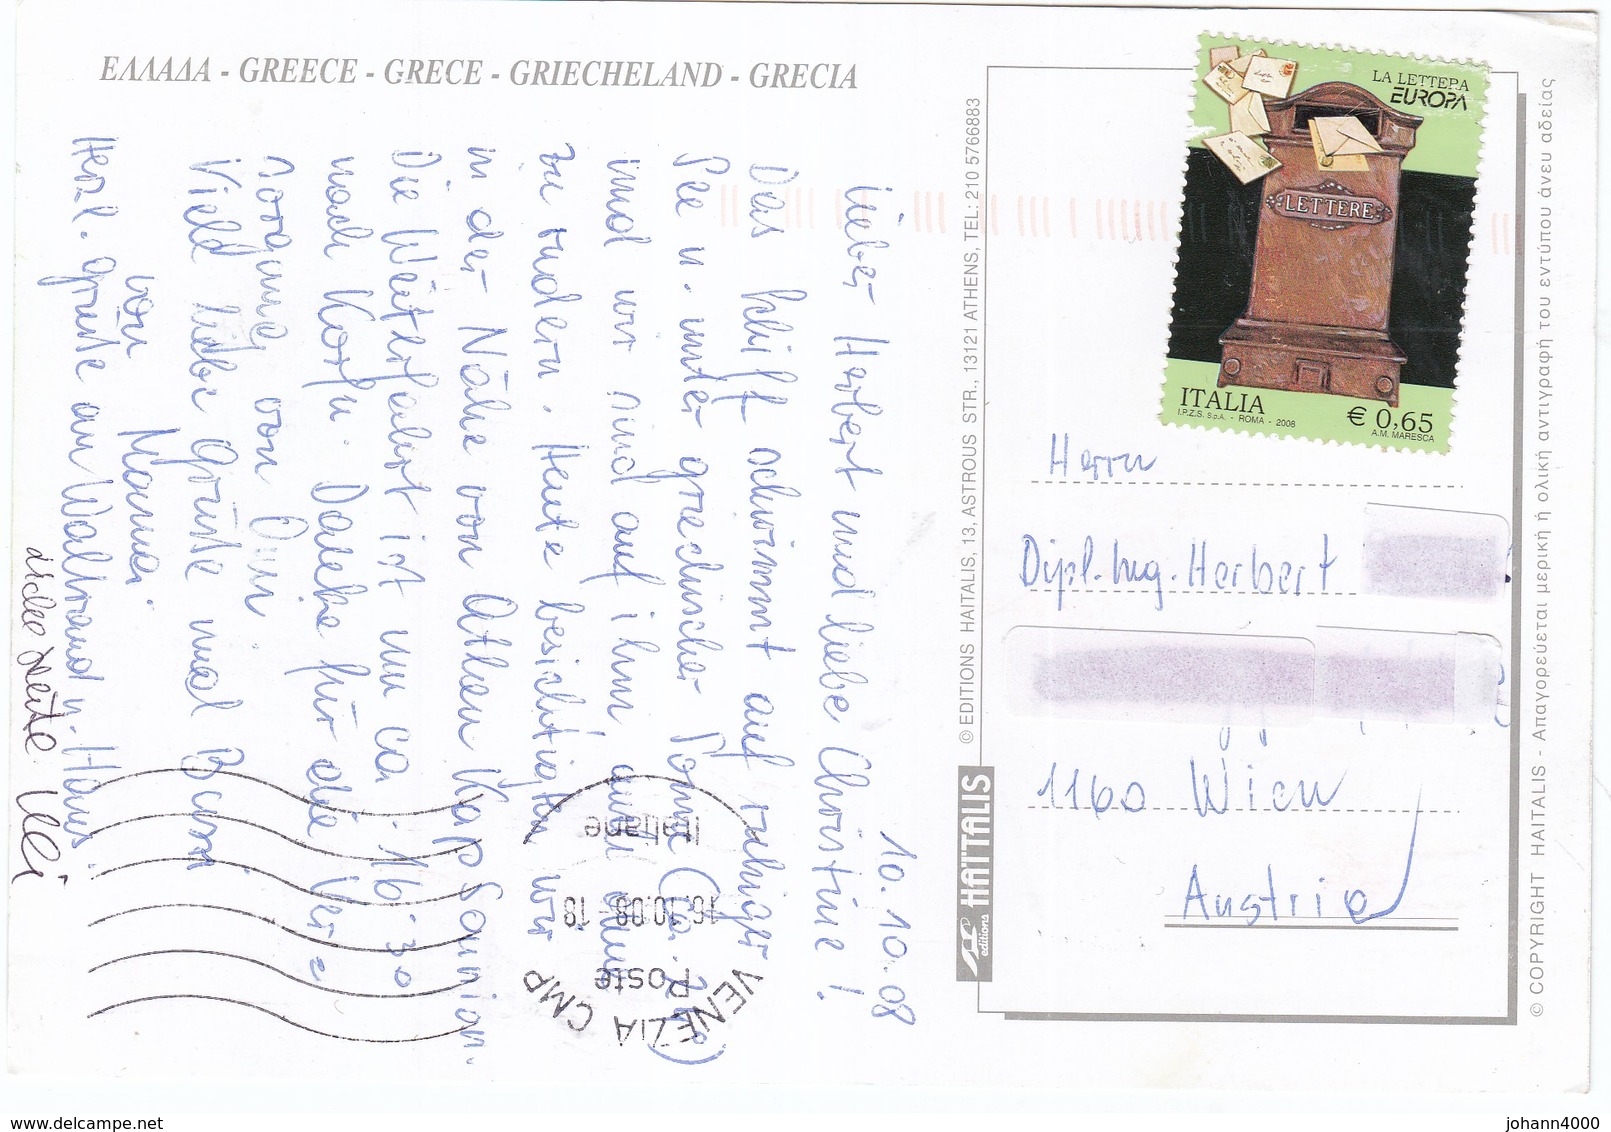 ΕΛΛΑΔΑ - GREECE - GRECE - GRIECHELAND - GRECIA
10.10.08
Lieber Herbert und liebe Christine!
Das Schiff schwimmt auf ruhiger
See u. unter griechischer Sonne (ca. 26°)
und wir sind auf ihm, auch ohne
zu rudern. Heute besichtigten wir
in der Nähe von Athen Kap Sounion.
Die Weiterfahrt ist um ca. 16.30
nach Korfu. Danke für die Ver=
sorgung von Ouri.
Vield liebe Grüße und Bussi
von Mama.
Herzl. Grüße an Waltraud u. Hans.
Uli
© EDITIONS HAITALIS, 13, ASTROUS STR., 13121 ATHENS, TEL: 210 5766883
editions HAÏTALIS
LA LETTERA
EUROPA
LETTERE
ITALIA
€ 0,65
I.P.Z.S. S.p.A. - ROMA - 2008
A.M. MARESCA
Herrn
Dipl.-Ing. Herbert
1160 Wien
Austria
VENEZIA CMP
Poste
16.10.08 - 18
Italiane
© COPYRIGHT HAITALIS - Απαγορεύεται μερική ή ολική αντιγραφή του εντύπου άνευ αδείας
www.delcampe.net
johann4000